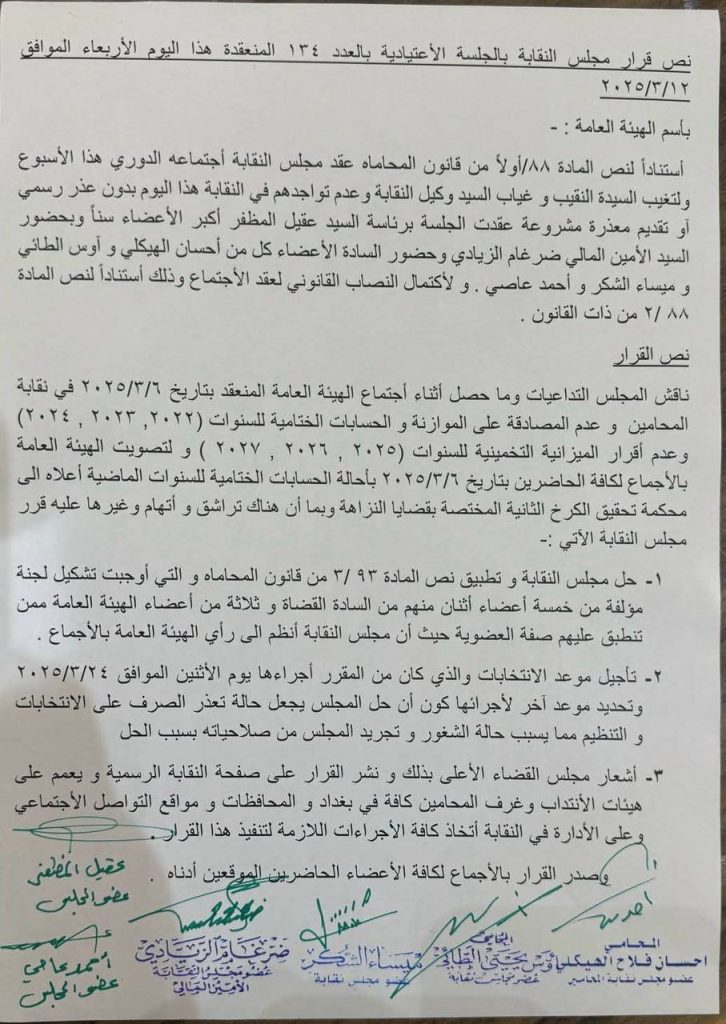 نص قرار مجلس النقابة بالجلسة الأعتيادية بالعدد ١٣٤ المنعقدة هذا اليوم الأربعاء الموافق
٢٠٢٥/٣/١٢
بأسم الهيئة العامة : -
أستناداً لنص المادة ٨٨/أولاً من قانون المحاماه عقد مجلس النقابة أجتماعه الدوري هذا الأسبوع
ولتغيب السيدة النقيب و غياب السيد وكيل النقابة وعدم تواجدهم في النقابة هذا اليوم بدون عذر رسمي
آو تقديم معذرة مشروعة عقدت الجلسة برئاسة السيد عقيل المظفر أكبر الأعضاء سناً وبحضور
السيد الأمين المالي ضرغام الزيادي وحضور السادة الأعضاء كل من أحسان الهيكلي و آوس الطائي
و ميساء الشكر و أحمد عاصي . و لأكتمال النصاب القانوني لعقد الأجتماع وذلك أستناداً لنص المادة
٨٨ /٢ من ذات القانون .
نص القرار
ناقش المجلس التداعيات وما حصل أثناء أجتماع الهيئة العامة المنعقد بتاريخ ٢٠٢٥/٣/٦ في نقابة
المحامين و عدم المصادقة على الموازنة و الحسابات الختامية للسنوات (٢٠٢٢, ٢٠٢٣ , ٢٠٢٤)
وعدم أقرار الميزانية التخمينية للسنوات (٢٠٢٥ , ٢٠٢٦ , ٢٠٢٧ ) و لتصويت الهيئة العامة
بالأجماع لكافة الحاضرين بتاريخ ٢٠٢٥/٣/٦ بأحالة الحسابات الختامية للسنوات الماضية أعلاه الى
محكمة تحقيق الكرخ الثانية المختصة بقضايا النزاهة وبما أن هناك تراشق و أتهام وغيرها عليه قرر
مجلس النقابة الآتي :-
١- حل مجلس النقابة و تطبيق نص المادة ٩٣ /٣ من قانون المحاماه و التي أوجبت تشكيل لجنة
مؤلفة من خمسة أعضاء أثنان منهم من السادة القضاة و ثلاثة من أعضاء الهيئة العامة ممن
تنطبق عليهم صفة العضوية حيث أن مجلس النقابة أنظم الى رأي الهيئة العامة بالأجماع .
٢- تأجيل موعد الانتخابات والذي كان من المقرر أجراءها يوم الأثنين الموافق ٢٠٢٥/٣/٢٤
وتحديد موعد آخر لأجرائها كون أن حل المجلس يجعل حالة تعذر الصرف على الانتخابات
و التنظيم مما يسبب حالة الشغور و تجريد المجلس من صلاحياته بسبب الحل
٣- أشعار مجلس القضاء الأعلى بذلك و نشر القرار على صفحة النقابة الرسمية و يعمم على
هيئات الأنتداب وغرف المحامين كافة في بغداد و المحافظات و مواقع التواصل الأجتماعي
وعلى الأدارة في النقابة أتخاذ كافة الأجراءات اللازمة لتنفيذ هذا القرار .
وصدر القرار بالأجماع لكافة الأعضاء الحاضرين الموقعين أدناه .
المحامي
احسان فلاح الهيكلي
عضو مجلس نقابة المحامين
المحامي
أوس يحيى الطائي
عضو مجلس نقابة
ميساء الشكر
عضو مجلس نقابة
ضرغام الزيادي
عضو مجلس النقابة
الأمين المالي
عقيل المظفر
عضو المجلس
أحمد عاصي
عضو المجلس